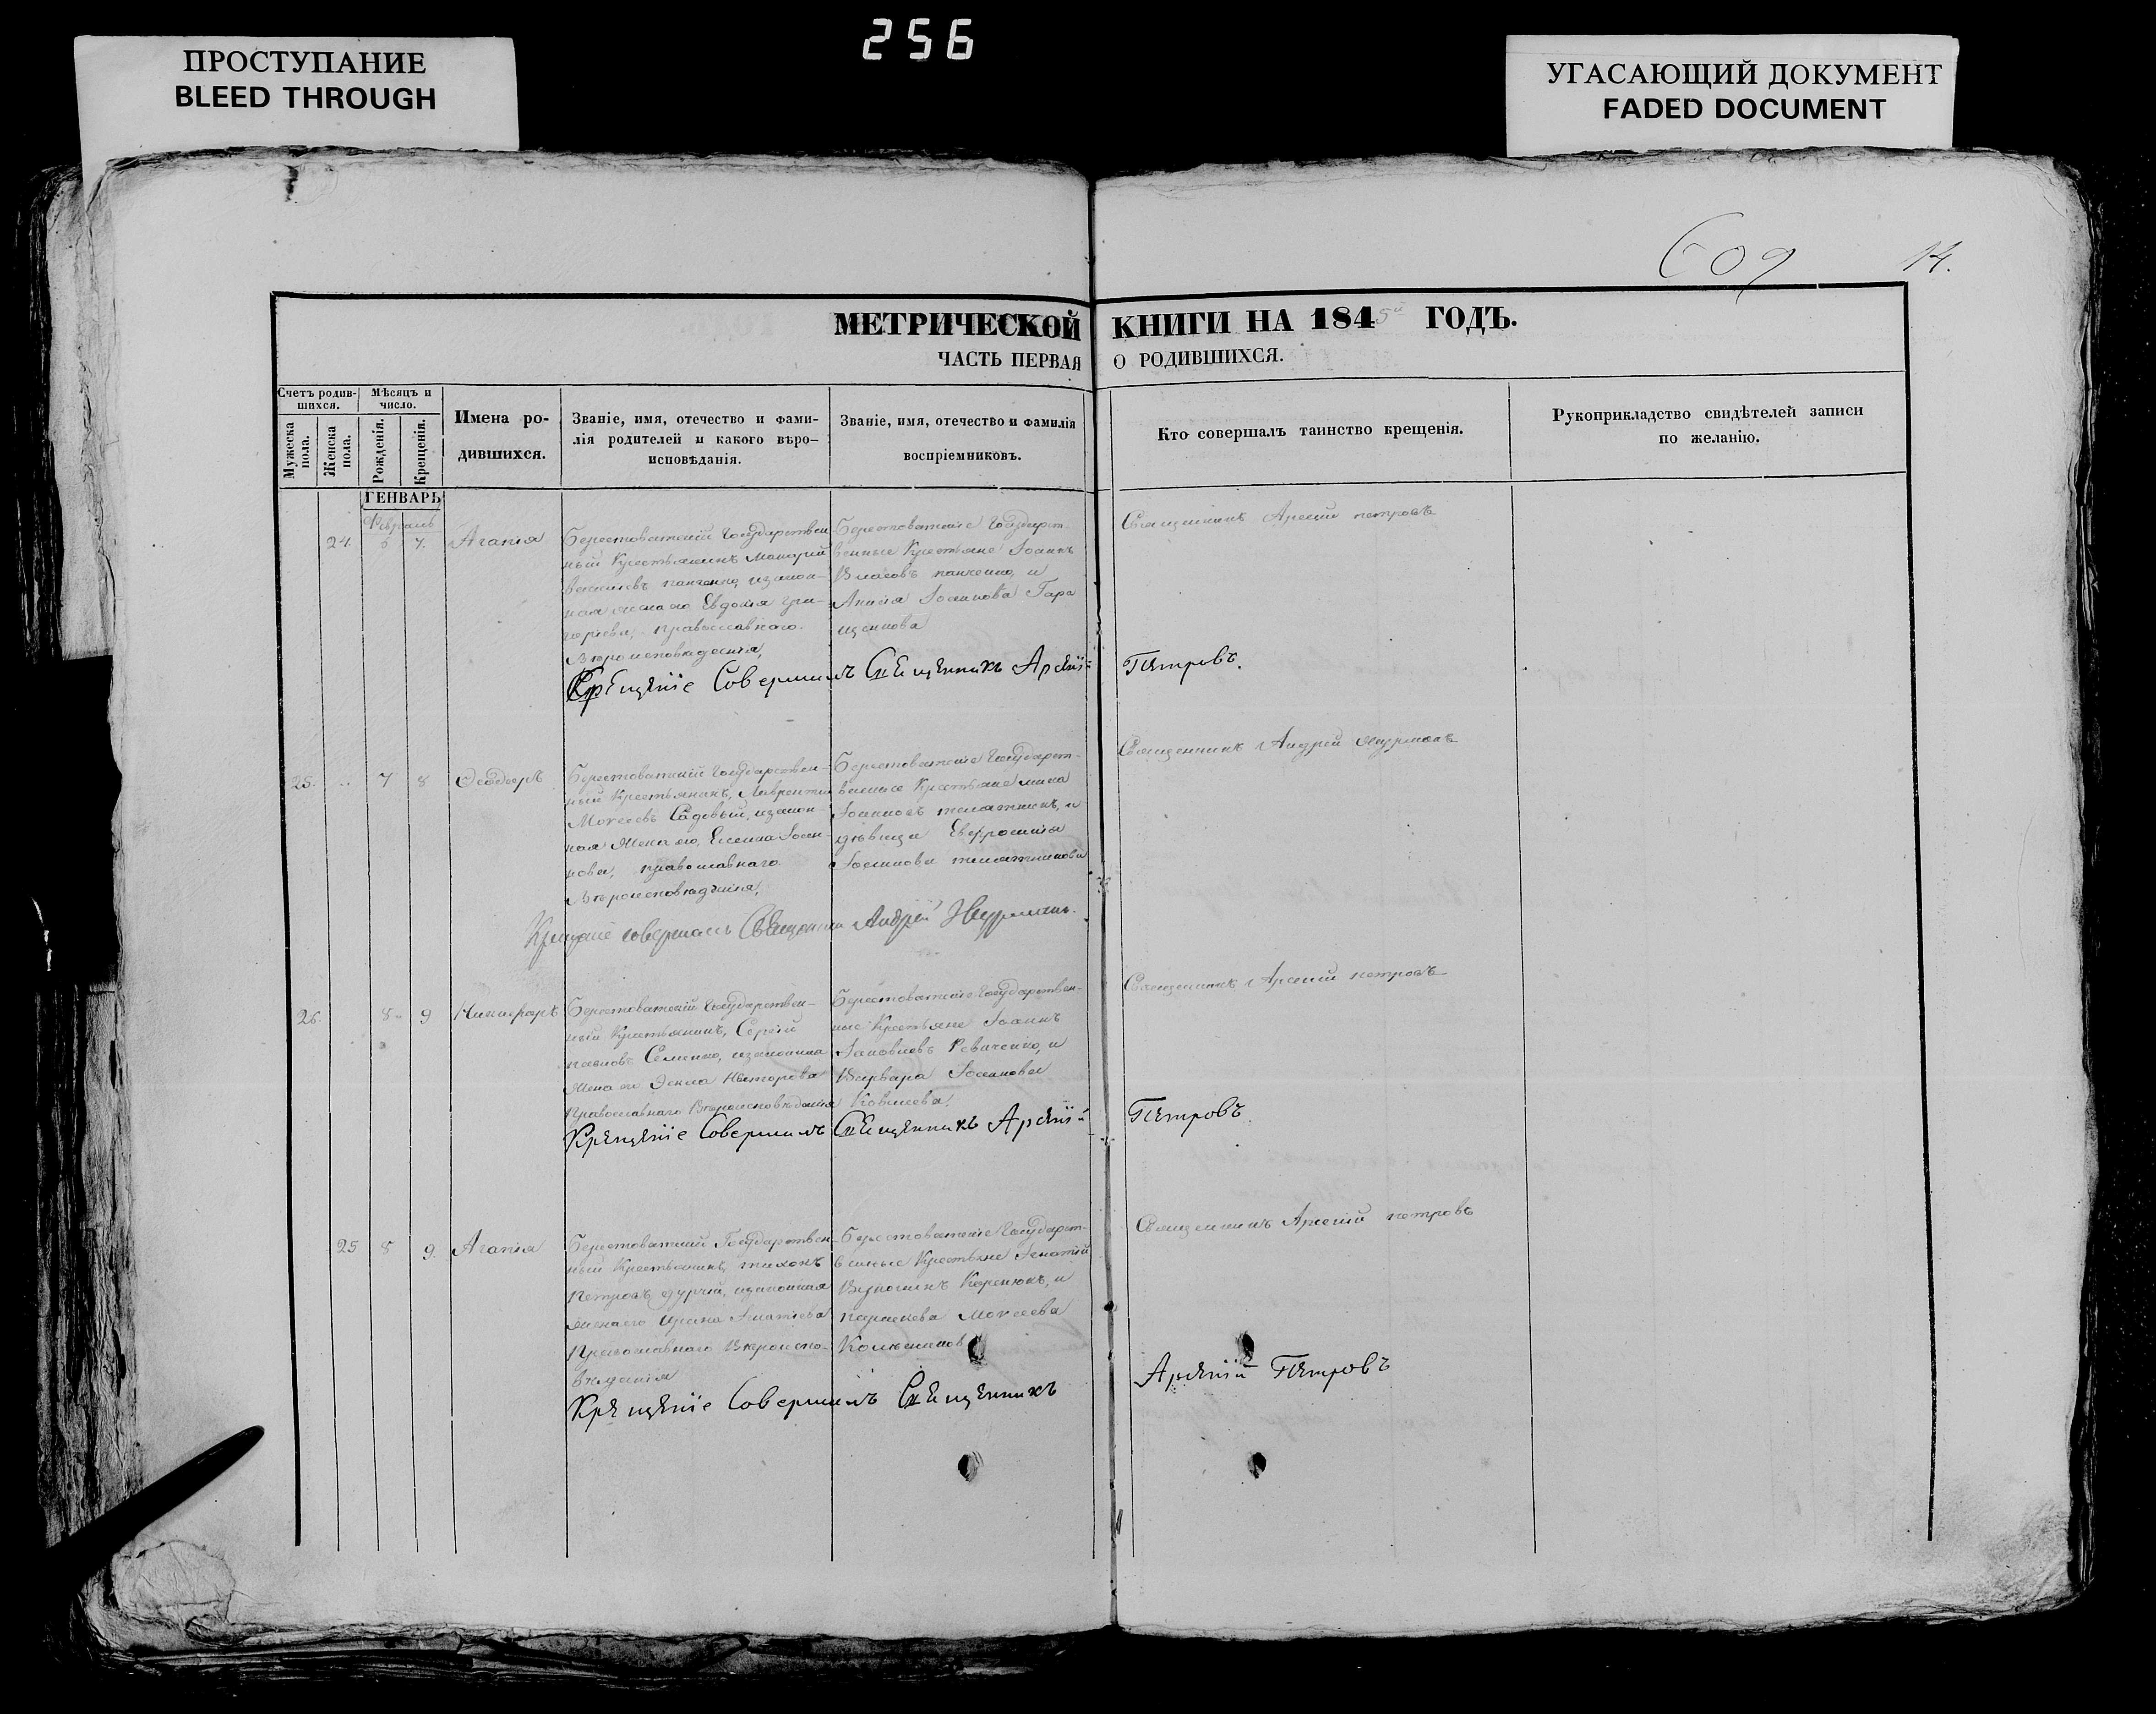 256
ПРОСТУПАНИЕ
BLEED THROUGH
УГАСАЮЩИЙ ДОКУМЕНТ
FADED DOCUMENT
609 14.
МЕТРИЧЕСКОЙ КНИГИ НА 1845й ГОДЪ.
ЧАСТЬ ПЕРВАЯ О РОДИВШИХСЯ.
Счетъ родив-
шихся.
Мужеска пола.
Женска пола.
Мѣсяцъ и
число.
Рожденія.
Крещенія.
Имена ро-
дившихся.
Званіе, имя, отечество и фами-
лія родителей и какого вѣро-
исповѣданія.
Званіе, имя, отечество и фамилія
воспріемниковъ.
Кто совершалъ таинство крещенія.
Рукоприкладство свидѣтелей записи
по желанію.
ГЕНВАРЬ
Февраль
24. 6 7. Агапія
Берестоватскій Государствен
ный Крестьянинъ
Васильевъ панченко, изакон-
ная жена его Евдокія Гри-
горьева, православнаго
Вѣроисповѣданія,
Берестоватскіе Государст-
венные Крестьяне Іоаннъ
Власовъ панченко, и
Іоаннова Гара
щенкова
Священникъ Арсений петровъ
Крещеніе Совершилъ Священникъ Арсеній Петровъ.
25. .. 7 8 Ѳеодоръ
Берестоватский Государствен-
ный Крестьянинъ, Лаврентий
Моисеевъ Садовый, изакон-
ная Жена его, Елена Іоан-
нова, православнаго
Вѣроисповѣданія,
Берестоватские Государст-
венные Крестьяне
Іоанновъ телятникъ, и
дѣвица Евфросинія
Іоаннова телятникова
Священникъ Андрей
Крещеніе совершалъ Священникъ Андрей
26. 8 9 Никифоръ
Берестоватский Государствен-
ный Крестьянинъ, Сергій
павловъ Семенко, изаконная
Жена его Ѳекла Несторова
Православнаго Вѣроисповѣданія
Берестоватские Государствен-
ные Крестьяне Іоаннъ
Іаковлевъ и
Варвара Іоаннова
Ковалева,
Священникъ Арсений петровъ
Крещеніе Совершилъ Священникъ Арсеній Петровъ.
25 8 9 Агапія
Берестоватский Государствен-
ный Крестьянинъ, тихонъ
Петровъ изаконная
жена его Ирина Игнатіева
Православнаго Вѣроиспо-
вѣданія
Берестоватские Государст-
венные Крестьяне Игнатій
и
Моисеева
Священникъ Арсений петровъ
Крещеніе Совершилъ Священникъ Арсеній Петровъ